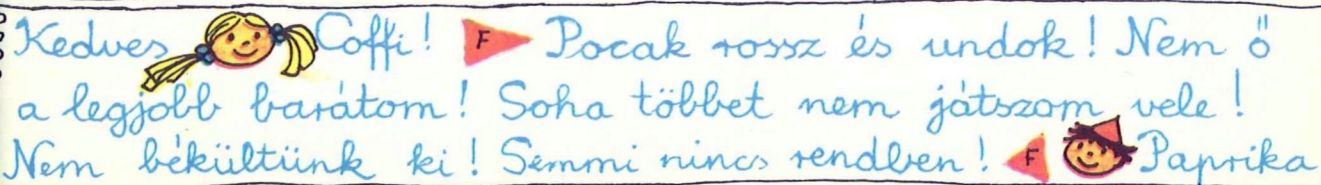 Kedves Coffi! F Pocak rossz és undok! Nem ő
a legjobb barátom! Soha többet nem játszom vele!
Nem békültünk ki! Semmi nincs rendben! F Paprika